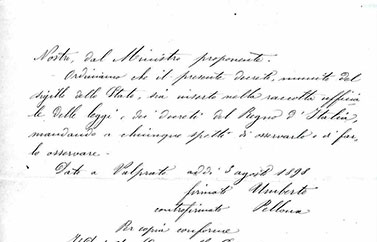 Nostro, dal Ministro proponente.
Ordiniamo che il presente decreto, munito del
sigillo dello Stato, sia inserto nella raccolta ufficia
le delle leggi e dei decreti del Regno d'Italia,
mandando a chiunque spetti di osservarlo e di far
lo osservare.
Dato a Valprato addì 3 agosto 1898
firmato Umberto
controfirmato Pelloux
Per copia conforme